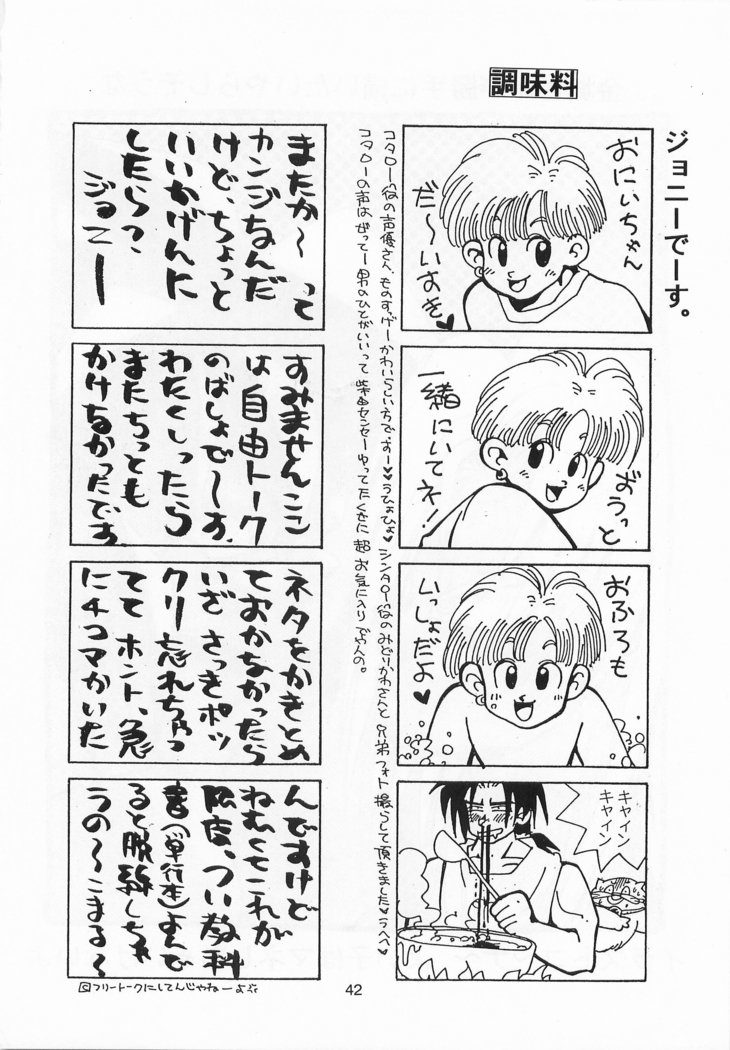 調味料
ジョニーでーす。
おにぃちゃん
だ〜いすき♥
ずうっと
一緒にいてネ!
おふろも
いっしょだよ♥
キャイン
キャイン
コタロー役の声優さん、ものすっげーかわいらしい方でっすー♥♥うひょひょ♥シンタロー役のみどりかわさんと兄弟フォト撮らして頂きました♥うへへ♥
コタローの声はぜってー男のひとがいいって柴田センセーゆってたくせに超お気に入りなんの。
またか〜って
カンジなんだ
けど、ちょっと
いいかげんに
したら?
ジョニー
すみませんここ
は自由トーク
のばしょで〜す。
わたくしったら
またちっとも
かけなかったです
ネタをかきとめ
ておかなかったら
いざさっきポッ
クリ忘れちゃっ
ててホント、急
に4コマかいた
んですけど
ねむくてこれが
限度、つい教科
書(単行本)よんで
ると脱線しちゃ
うの〜こまる〜
フリートークにしてんじゃねーよ
42